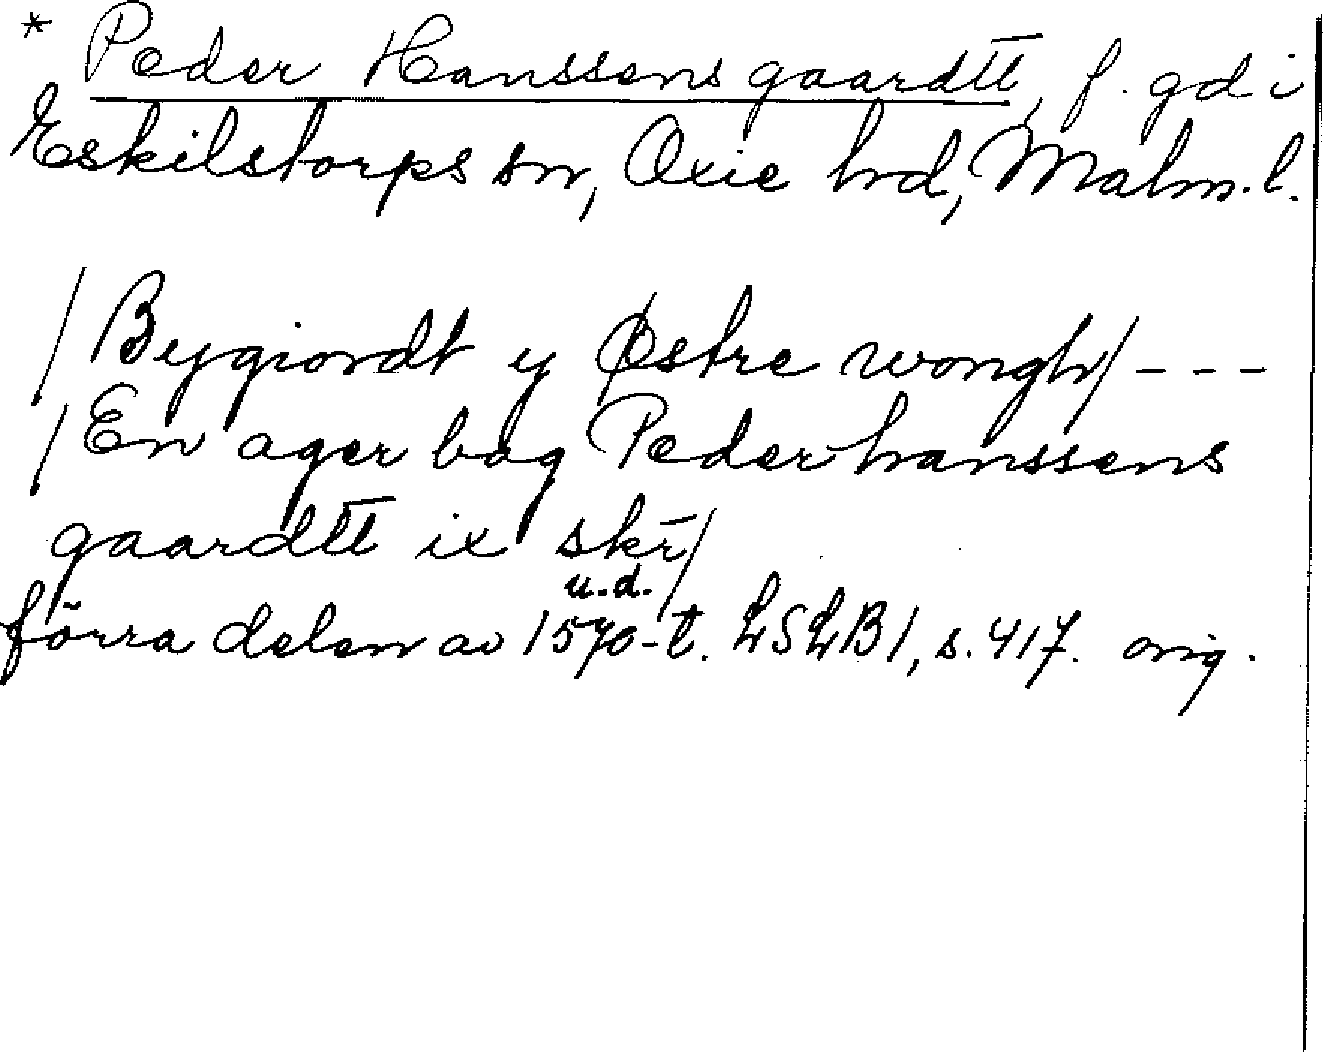 * Peder Hanssens gaardtt, f. gd i
Eskilstorps sn, Oxie hrd, Malm. l.
/Bygiordt y Østre wongh/ ---
/En ager bag Peder hanssens
gaardtt ix skr̄/
u.d.
förra delen av 1570-t. LSLB1, s. 417. orig.